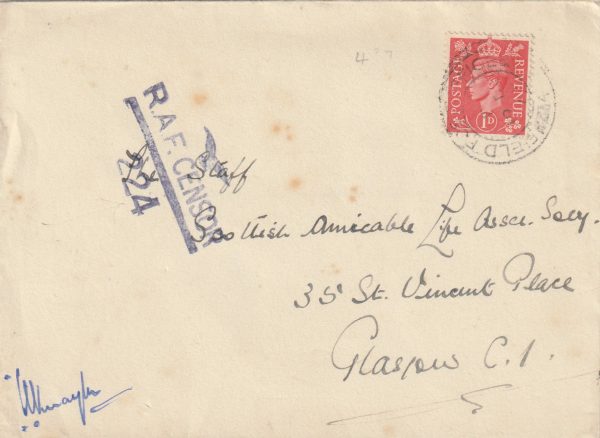 POSTAGE REVENUE
1D
FIELD
R.A.F. CENSOR
224
The Staff
Scottish Amicable Life Assce. Socy.
35 St. Vincent Place
Glasgow C.1.